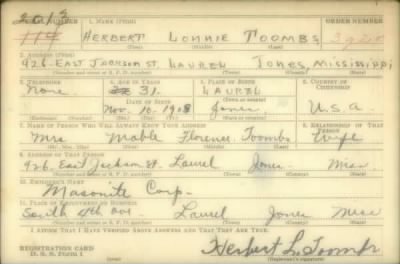 2613
SERIAL NUMBER 1. NAME (Print) ORDER NUMBER
114 HERBERT LONNIE TOOMBS
(First) (Middle) (Last)
2. ADDRESS (Print)
926 EAST JACKSON ST. LAUREL JONES, MISSISSIPPI
(Number and street or R. F. D. number) (Town) (County) (State)
3. TELEPHONE 4. AGE IN YEARS 5. PLACE OF BIRTH 6. COUNTRY OF CITIZENSHIP
None. 31. LAUREL
DATE OF BIRTH (Town or county)
Nov. 10. 1908 Jones. U.S.A.
(Exchange) (Number) (Mo.) (Day) (Yr.) (State or country)
7. NAME OF PERSON WHO WILL ALWAYS KNOW YOUR ADDRESS 8. RELATIONSHIP OF THAT PERSON
Mrs. Mable Florence Toombs Wife
(Mr., Mrs., Miss) (First) (Middle) (Last)
9. ADDRESS OF THAT PERSON
926. East Jackson St. Laurel Jones Miss
(Number and street or R. F. D. number) (Town) (County) (State)
10. EMPLOYER'S NAME
Masonite Corp.
11. PLACE OF EMPLOYMENT OR BUSINESS
South 4th Ave. Laurel Jones Miss
(Number and street or R. F. D. number) (Town) (County) (State)
I AFFIRM THAT I HAVE VERIFIED ABOVE ANSWERS AND THAT THEY ARE TRUE.
REGISTRATION CARD
D. S. S. Form 1 Herbert L. Toombs
(over) (Registrant's signature)